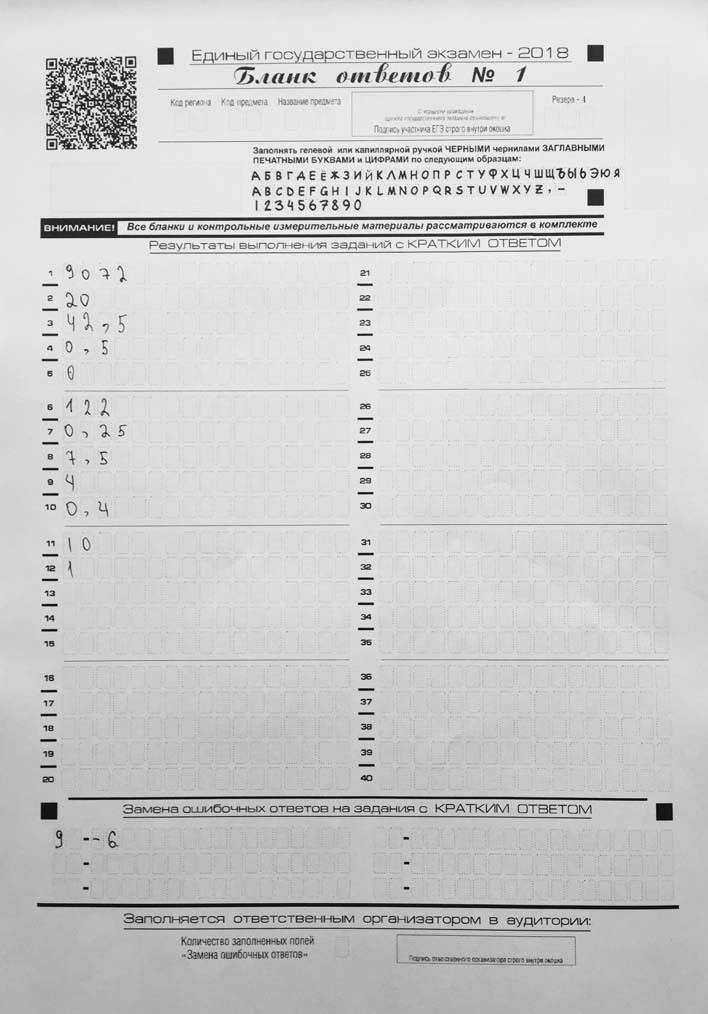 Единый государственный экзамен - 2018
Бланк ответов № 1
Код региона Код предмета Название предмета Резерв - 4
Подпись участника ЕГЭ строго внутри окошка
Заполнять гелевой или капиллярной ручкой ЧЕРНЫМИ чернилами ЗАГЛАВНЫМИ
ПЕЧАТНЫМИ БУКВАМИ и ЦИФРАМИ по следующим образцам:
АБВГДЕЁЖЗИЙКЛМНОПРСТУФХЦЧШЩЪЫЬЭЮЯ
ABCDEFGHIJKLMNOPQRSTUVWXYZ,-
1234567890
ВНИМАНИЕ! Все бланки и контрольные измерительные материалы рассматриваются в комплекте
Результаты выполнения заданий с КРАТКИМ ОТВЕТОМ
1 9072 21
2 20 22
3 42,5 23
4 0,5 24
5 0 25
6 122 26
7 0,25 27
8 7,5 28
9 4 29
10 0,4 30
11 10 31
12 1 32
13 33
14 34
15 35
16 36
17 37
18 38
19 39
20 40
Замена ошибочных ответов на задания с КРАТКИМ ОТВЕТОМ
9 - -6 -
- -
- -
Заполняется ответственным организатором в аудитории:
Количество заполненных полей
«Замена ошибочных ответов»
Подпись ответственного организатора строго внутри окошка